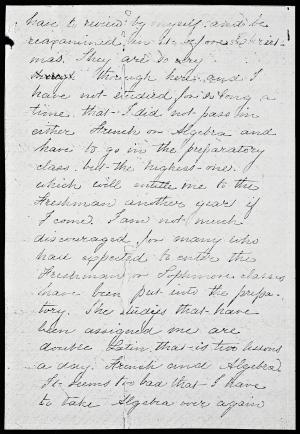 have to review by myself and be
reexamined in it before Christ-
mas. They are so very
through here and I
have not studied for so long a
time, that I did not pass in
either French or Algebra and
have to go in the preparatory
class but the highest one.
which will entitle me to the
Freshman another year if
I come. I am not much
discouraged for many who
have expected to enter the
Freshman or Sophmore classes
have been put into the prepa-
tory. The studies that have
been assigned me are
double Latin that is two lessons
a day. French and Algebra.
It seems too bad that I have
to take Algebra over again